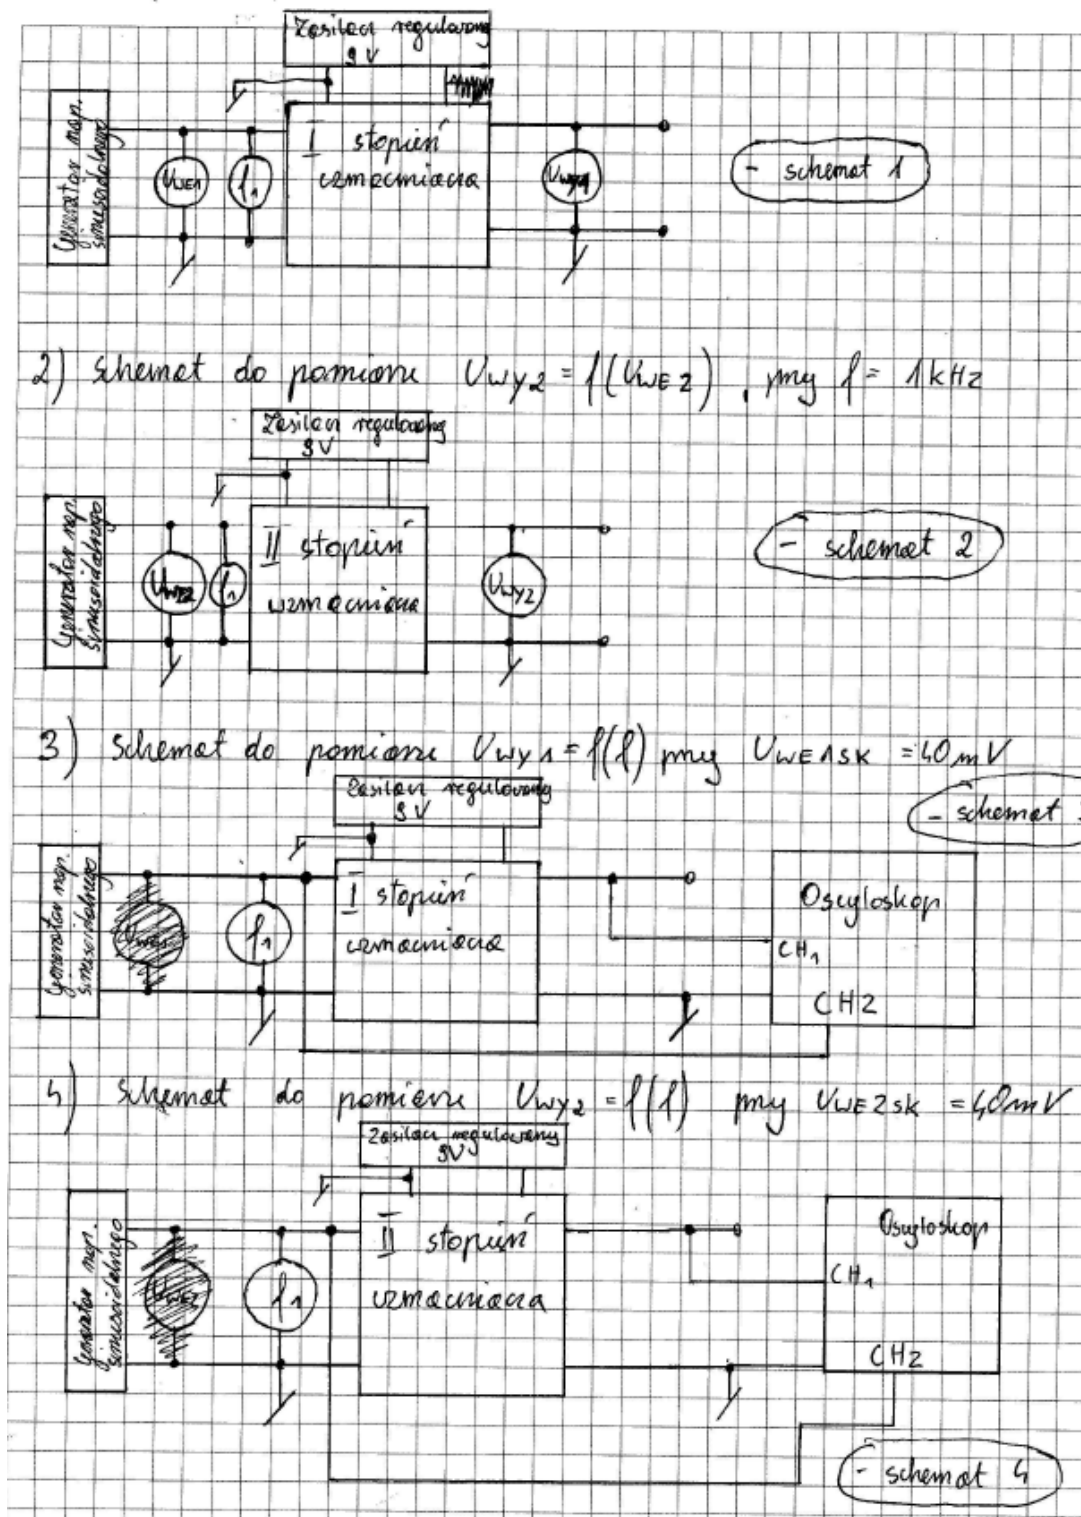 Zasilacz regulowany
9 V
Generator nap.
sinusoidalnego
UWE1
f1
I stopień
wzmacniacza
UWY1
- schemat 1
2) Schemat do pomiaru UWY2 = f(UWE2), przy f = 1kHz
Zasilacz regulowany
9V
Generator nap.
sinusoidalnego
f1
II stopień
wzmacniacza
UWY2
- schemat 2
3) Schemat do pomiaru UWY1 = f(f) przy UWE1SK = 40mV
Zasilacz regulowany
9V
- schemat
Generator nap.
sinusoidalnego
UWE1
f1
I stopień
wzmacniacza
Oscyloskop
CH1
CH2
4) Schemat do pomiaru UWY2 = f(f) przy UWE2SK = 40mV
Zasilacz regulowany
9V
Generator nap.
sinusoidalnego
UWE2
f1
II stopień
wzmacniacza
Oscyloskop
CH1
CH2
- schemat 4